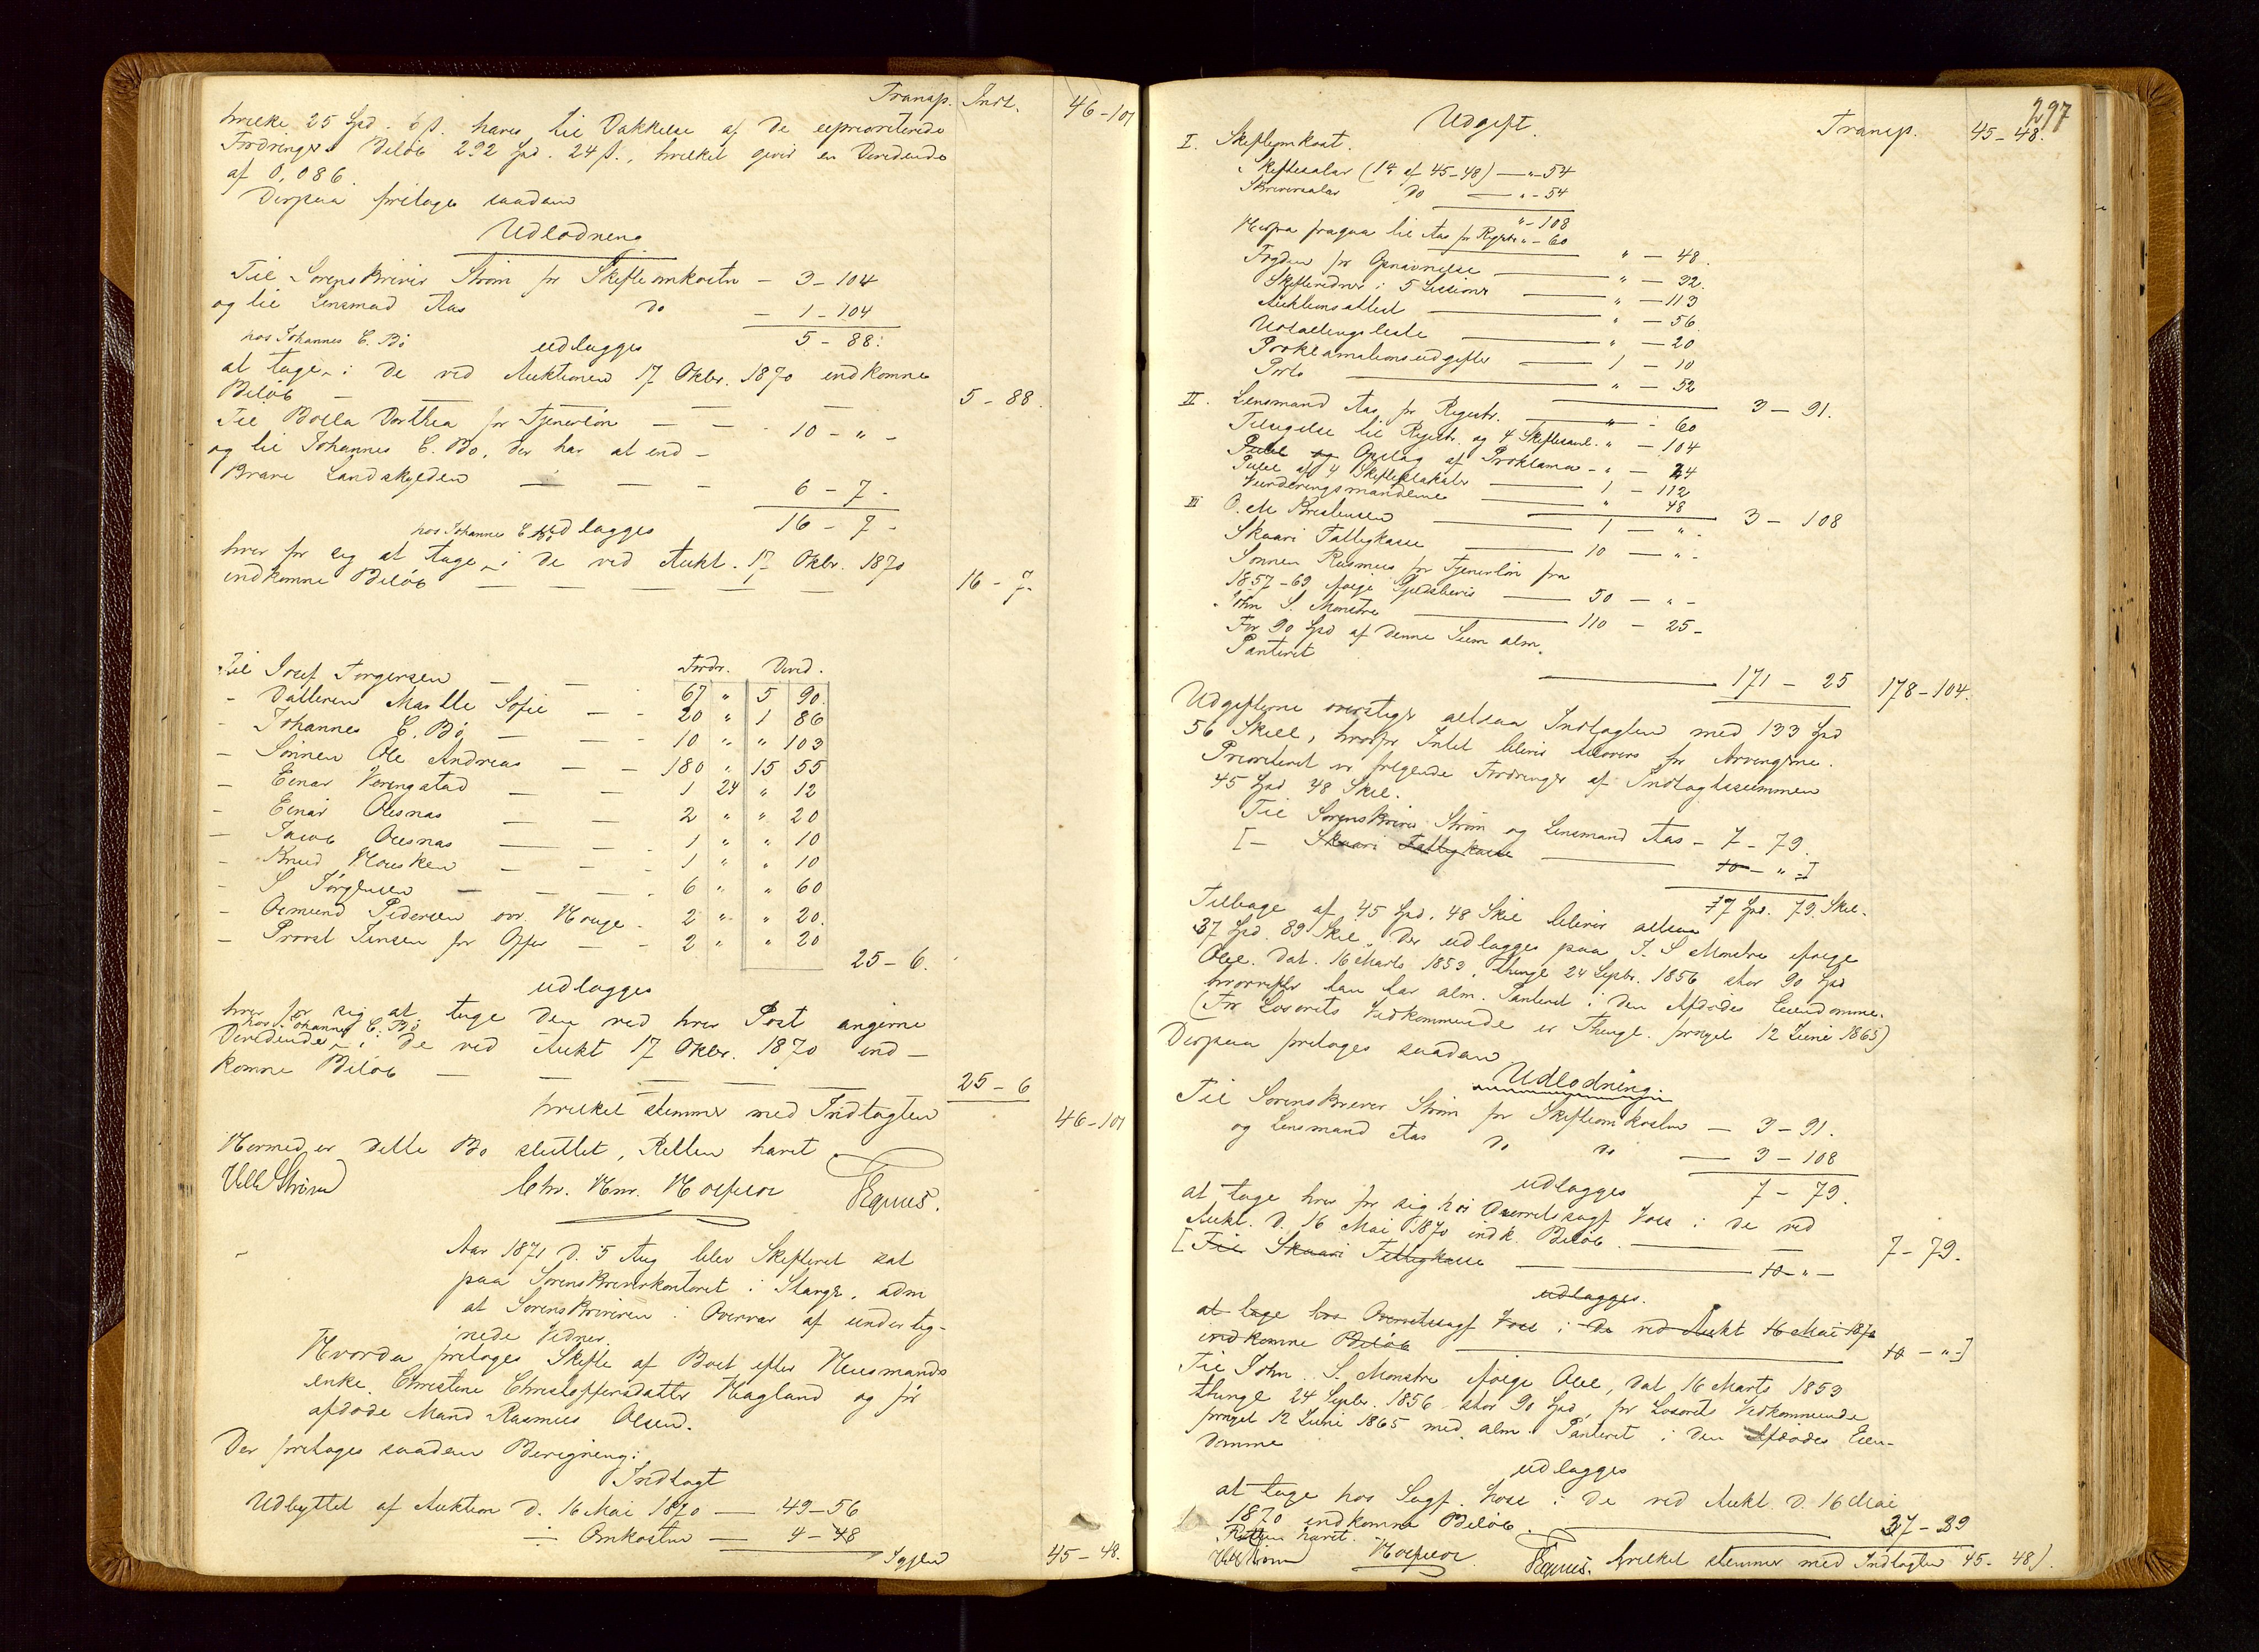 Transp. Indt. 46-101
hvilke 25 Spd. 6 s. haves til Dækkelse af de uprioriterede
Fordringers Beløb 292 Spd. 24 s., hvilket giver en Dividende
af 0,086.
Derpaa foretages saadan
Udlodning
Til Sorenskriver Strøm for Skifteomkostn - 3-104
og til Lensmand Aas do - 1-104
5-88.
hos Johannes C. Bö
udlægges
at tage i de ved Auktionen 17 Oktbr. 1870 indkomne
Beløb - - - - 5-88.
Til Bolla Dorthea for Tjenerløn - - 10-"-
og til Johannes C. Bö, der har at ind-
krave Landskylden - - - 6-7-
16-7-
hos Johannes C. Bö
udlægges
hver for sig at tage i de ved Aukt. 17 Oktbr. 1870
indkomne Beløb - - - - - 16-7-
Fordr. Divid.
Til Josef Torgersen - - 67 " 5 90.
- Datteren Malle Sofie - - 20 " 1 86
- Johannes C. Bö - - 10 " " 103
- Sønnen Ole Andreas - - 180 " 15 55
- Einar Voringstad - - 1 24 " 12
- Einar Olesnæs - - 2 " " 20
- Jacob Olesnæs - - 1 " " 10
- Knud Housken - - - 1 " " 10
- S. Jörgensen - - - 6 " " 60
- Osmund Pedersen Hauge - 2 " " 20.
- Provst Jensen for Offer - - 2 " " 20
25-6.
udlægges
hver for sig at tage den ved hver Post angivne
hos Johannes C. Bö
Dividende i de ved Aukt 17 Oktbr. 1870 ind-
komne Beløb - - - - - 25-6
hvilket stemmer med Indtægten 46-101
Hermed er dette Bo sluttet, Retten hævet
Chr. Hnr.
Aar 1871 d. 5 Aug blev Skifteret sat
paa Sorenskriverkontoret i Stavgr. adm
af Sorenskriveren i Overvær af underteg-
nede Vidner.
Hvorda foretages Skifte af Boet efter Huusmands
enke Christine Christoffersdatter Hagland og før
afdøde Mand Rasmus Olsen.
Der foretages saadan Beregning:
Indtægt
Udbyttet af Auktion d. 16 Mai 1870 - 49-56
÷ Omkostn - 4-48
45-48.
297
Udgift. Transp. 45-48.
I. Skifteomkost.
Skiftesalær (1% af 45-48) - "-54
Skriversalær do - "-54
"-108
Herfra fragaa til Aas for Registr "-60
" - 48.
Fogden for Opnævnelse - " - 32.
Skiftevidner i 5 Sessioner - " - 113
Auktionsattest - " - 56
Udtællingsliste - " - 20
Proklamationsudgifter - 1 - 10
Porto - " - 52
3 - 91.
II. Lensmand Aas for Registr. - " - 60
Tilsigelse til Registr. og 4 Skiftesaml. " - 104
Opslag af Proklama - " - 24
af 4 Skifteplakater - 1 - 112
Vurderingsmændene - " 48
3 - 108
III O. M. Kristensen - 1 - " -
Skaare Fattigkasse - 10 - " -
Sønnen Rasmus for Tjenerløn fra
1857-69 ifølge Gjeldsbevis - 50 - " -
John S. Monstre - 110 - 25-
For 90 Spd af denne Sum alm.
Panteret
171 - 25 178-104.
Udgifterne overstige altsaa Indtægten med 133 Spd
56 Skill, hvorfor Intet bliver tilovers for Arvingerne.
Prioriteret er følgende Fordringer af Indtægtssummen
45 Spd 48 Skil.
Til Sorenskriver Strøm og Lensmand Aas - 7-79.
[- Skaare Fattigkasse - 10-"-]
17 Spd. 79 Skil.
Tilbage af 45 Spd. 48 Skil bliver altsaa
37 Spd. 89 Skil, der udlægges paa J. S Monstre ifølge
Obl. dat. 16 Marts 1853, thingl 24 Septbr. 1856 stor 90 Spd
hvorefter han har alm. Panteret i den Afdødes Eiendomme.
(For Løsørets Vedkommende er Thingl. fornyet 12 Juni 1865)
Derpaa foretages saadan
Udlodning.
Til Sorenskriver Strøm for Skifteomkostn - 3-91.
og Lensmand Aas do do - 3-108
7-79.
udlægges
at tage hver for sig hos Overretssagf Voss i de ved
Aukt. d. 16 Mai 1870 indk. Beløb. - 7-79.
[Til Skaare Fattigkasse - 10-"-
udlægges.
at tage hos Overretssagf Voss i de ved Aukt 16 Mai 1870
indkomne Beløb - 10-"-]
Til John. S. Monstre ifølge Obl, dat 16 Marts 1853
thingl 24 Septbr. 1856 stor 90 Spd, for Løsørets Vedkommende
fornyet 12 Juni 1865 med alm. Panteret i den Afdødes Eien-
domme
udlægges
at tage hos Sagf. Voss i de ved Aukt. d. 16 Mai
1870 indkomne Beløb. - 37-89
Retten hævet.
hvilket stemmer med Indtægten 45-48).